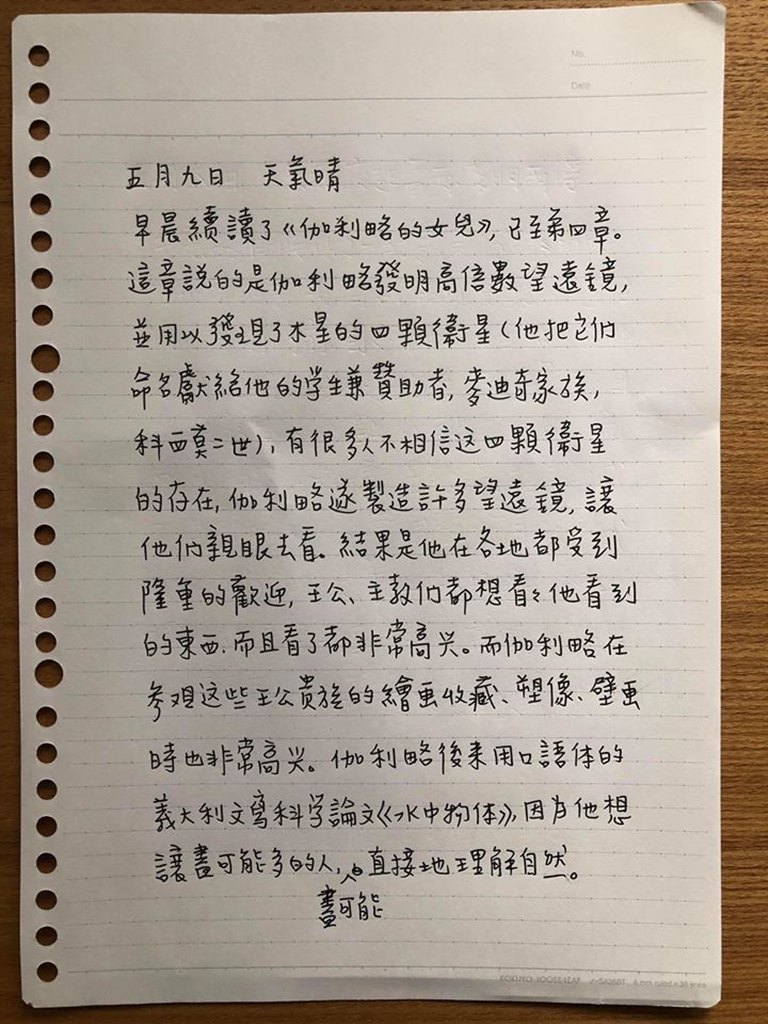 No.
Date
五月九日 天氣晴
早晨續讀了《伽利略的女兒》,已至第四章。
這章說的是伽利略發明高倍數望遠鏡,
並用以發現了木星的四顆衛星(他把它们
命名獻給他的学生兼贊助者,麥迪奇家族,
科西莫二世),有很多人不相信这四顆衛星
的存在,伽利略遂製造許多望遠鏡,讓
他们親眼去看。結果是他在各地都受到
隆重的歡迎,王公、主教们都想看看他看到
的東西.而且看了都非常高兴。而伽利略在
参观这些王公貴族的繪画收藏、塑像、壁画
時也非常高兴。伽利略後来用口語体的
義大利文寫科学論文《水中物体》,因为他想
讓盡可能多的人,直接地理解自然。
盡可能
KOKUYO LOOSE-LEAF 6 mm ruled × 36 lines